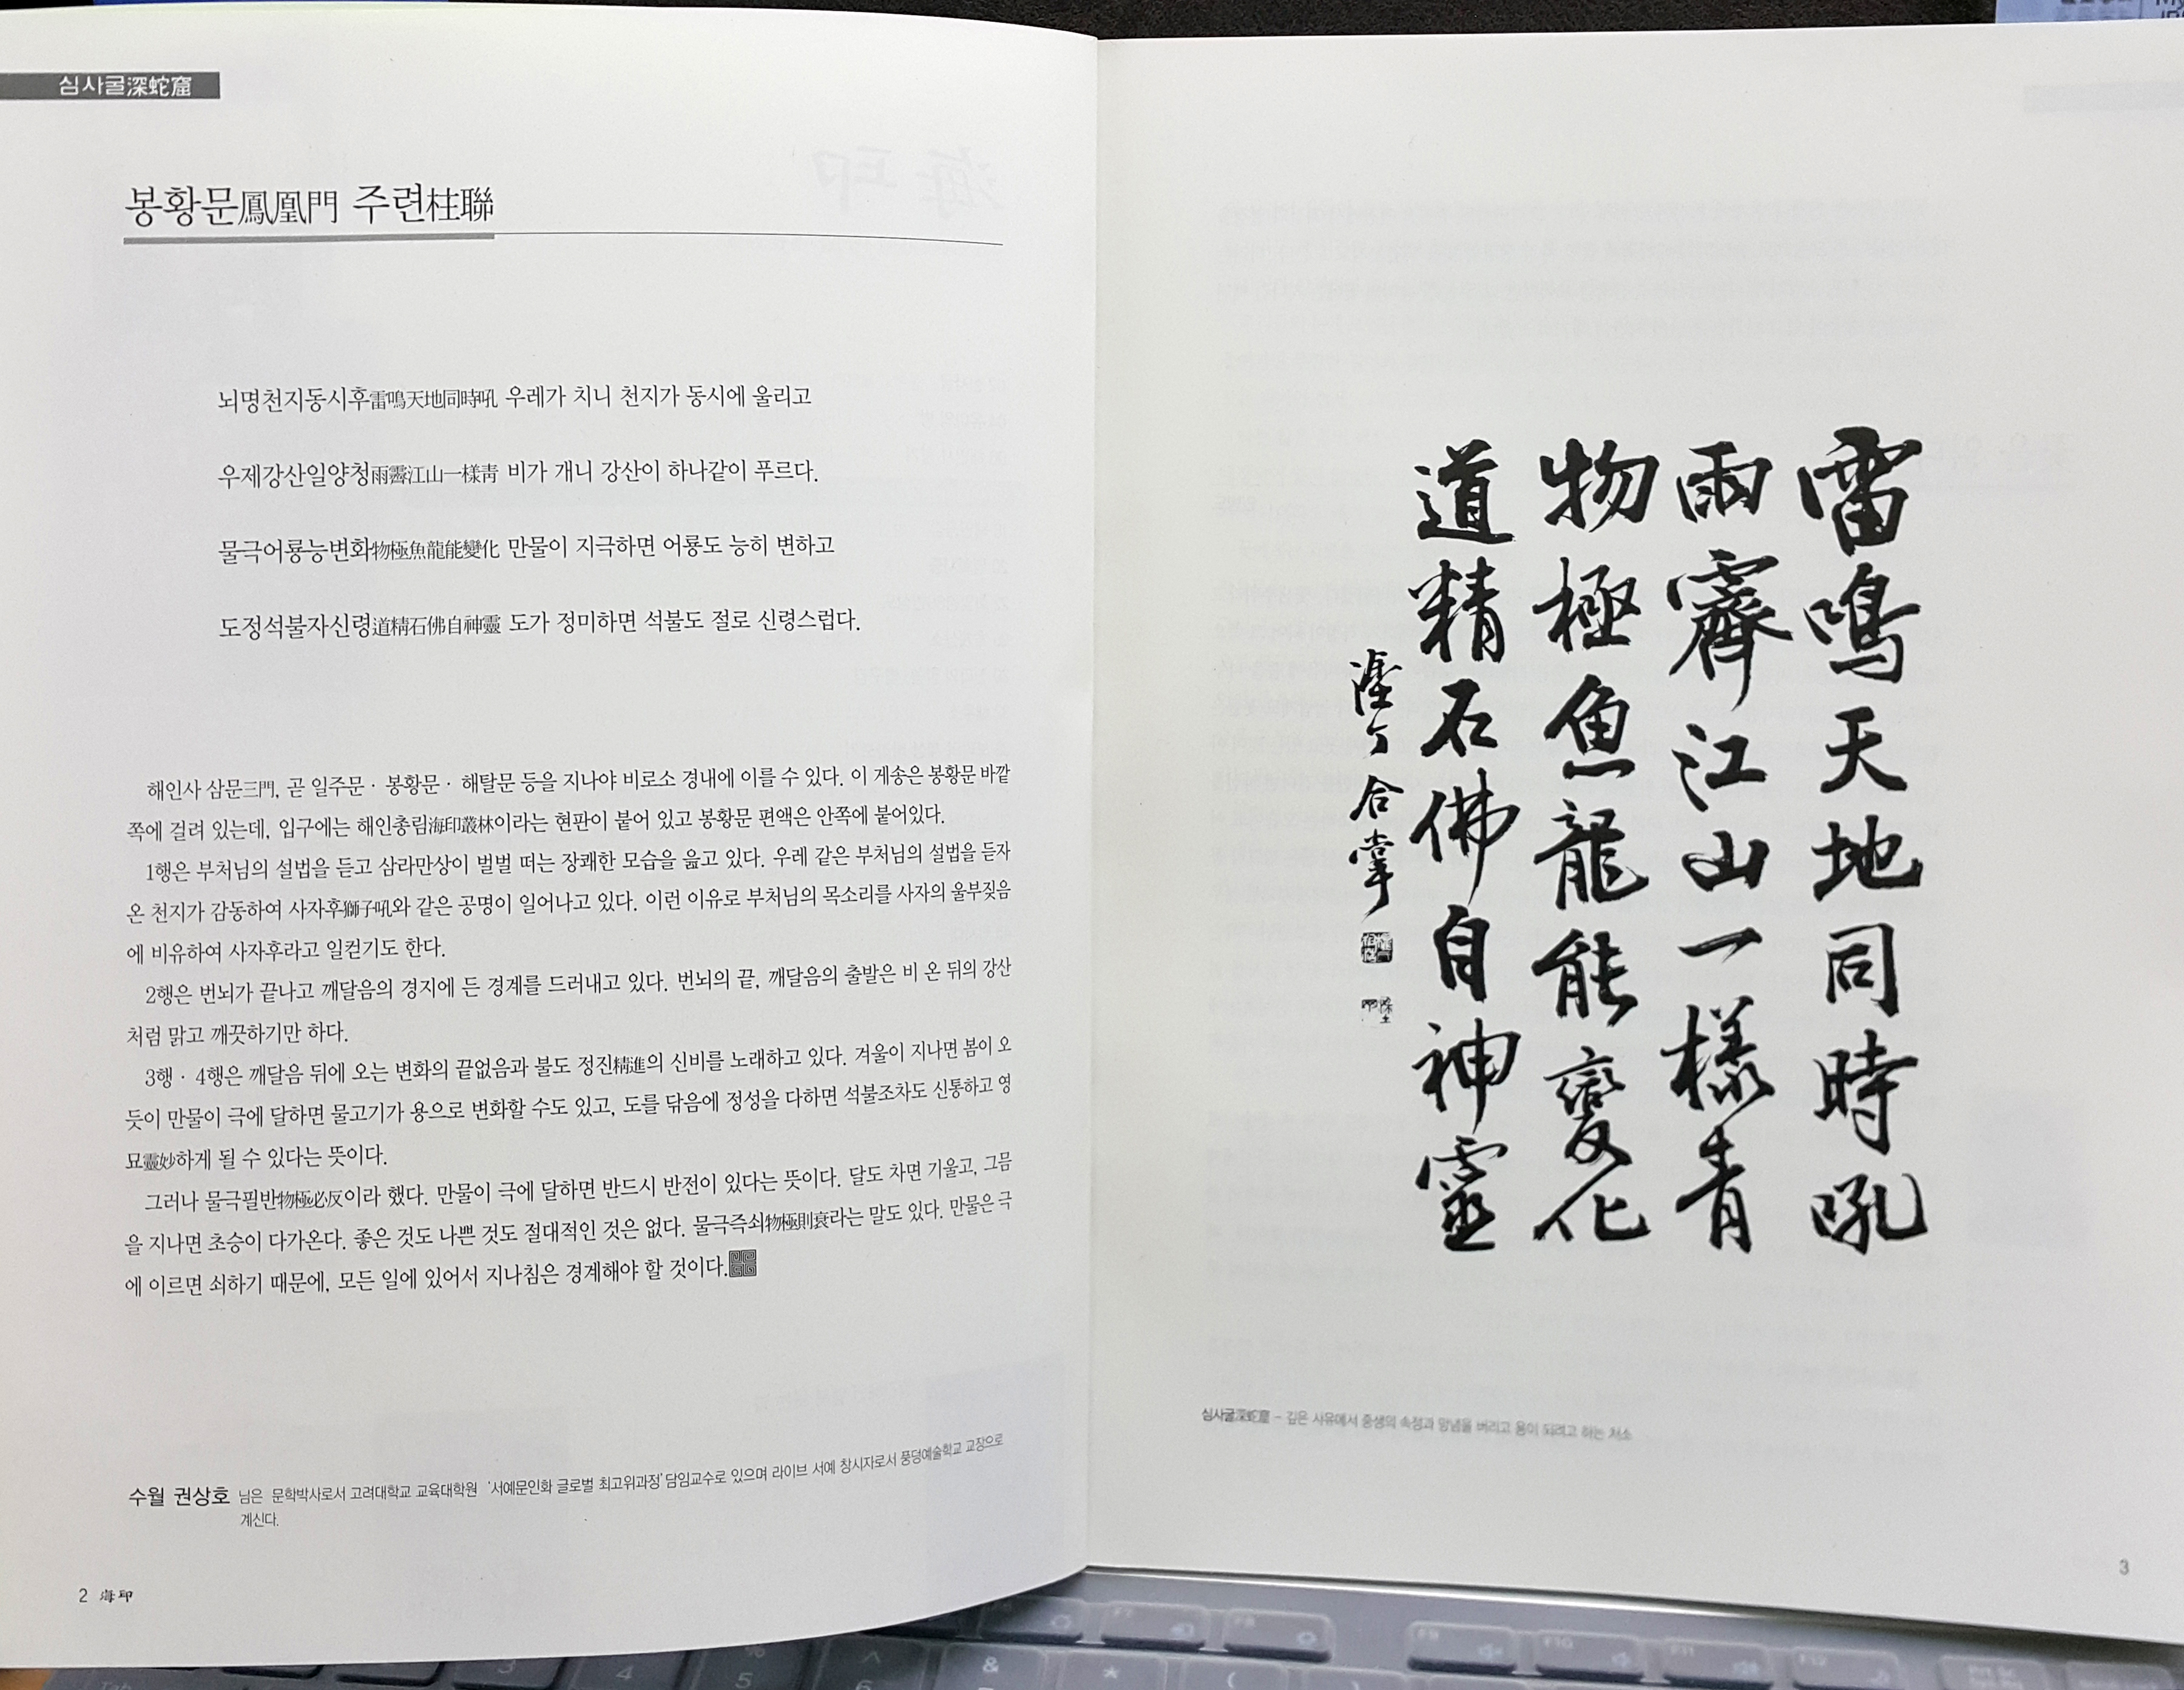 심사굴深蛇窟
봉황문鳳凰門 주련柱聯
뇌명천지동시후雷鳴天地同時吼 우레가 치니 천지가 동시에 울리고
우제강산일양청雨霽江山一樣靑 비가 개니 강산이 하나같이 푸르다.
물극어룡능변화物極魚龍能變化 만물이 지극하면 어룡도 능히 변하고
도정석불자신령道精石佛自神靈 도가 정미하면 석불도 절로 신령스럽다.
해인사 삼문三門, 곧 일주문 · 봉황문 · 해탈문 등을 지나야 비로소 경내에 이를 수 있다. 이 게송은 봉황문 바깥
쪽에 걸려 있는데, 입구에는 해인총림海印叢林이라는 현판이 붙어 있고 봉황문 편액은 안쪽에 붙어있다.
1행은 부처님의 설법을 듣고 삼라만상이 벌벌 떠는 장쾌한 모습을 읊고 있다. 우레 같은 부처님의 설법을 듣자
온 천지가 감동하여 사자후獅子吼와 같은 공명이 일어나고 있다. 이런 이유로 부처님의 목소리를 사자의 울부짖음
에 비유하여 사자후라고 일컫기도 한다.
2행은 번뇌가 끝나고 깨달음의 경지에 든 경계를 드러내고 있다. 번뇌의 끝, 깨달음의 출발은 비 온 뒤의 강산
처럼 맑고 깨끗하기만 하다.
3행 · 4행은 깨달음 뒤에 오는 변화의 끝없음과 불도 정진精進의 신비를 노래하고 있다. 겨울이 지나면 봄이 오
듯이 만물이 극에 달하면 물고기가 용으로 변화할 수도 있고, 도를 닦음에 정성을 다하면 석불조차도 신통하고 영
묘靈妙하게 될 수 있다는 뜻이다.
그러나 물극필반物極必反이라 했다. 만물이 극에 달하면 반드시 반전이 있다는 뜻이다. 달도 차면 기울고, 그믐
을 지나면 초승이 다가온다. 좋은 것도 나쁜 것도 절대적인 것은 없다. 물극즉쇠物極則衰라는 말도 있다. 만물은 극
에 이르면 쇠하기 때문에, 모든 일에 있어서 지나침은 경계해야 할 것이다.
수월 권상호 님은 문학박사로서 고려대학교 교육대학원 '서예문인화 글로벌 최고위과정' 담임교수로 있으며 라이브 서예 창시자로서 풍덩예술학교 교장으로
계신다.
2 海印
雷鳴天地同時吼
雨霽江山一樣青
物極魚龍能變化
道精石佛自神靈
合掌
심사굴深蛇窟 - 깊은 사유에서 중생의 속정과 망념을 버리고 용이 되려고 하는 처소
3
F7
F8
F9
F10
F11
F12
3
4
5
6
%
^
&
*
(
)
Tab